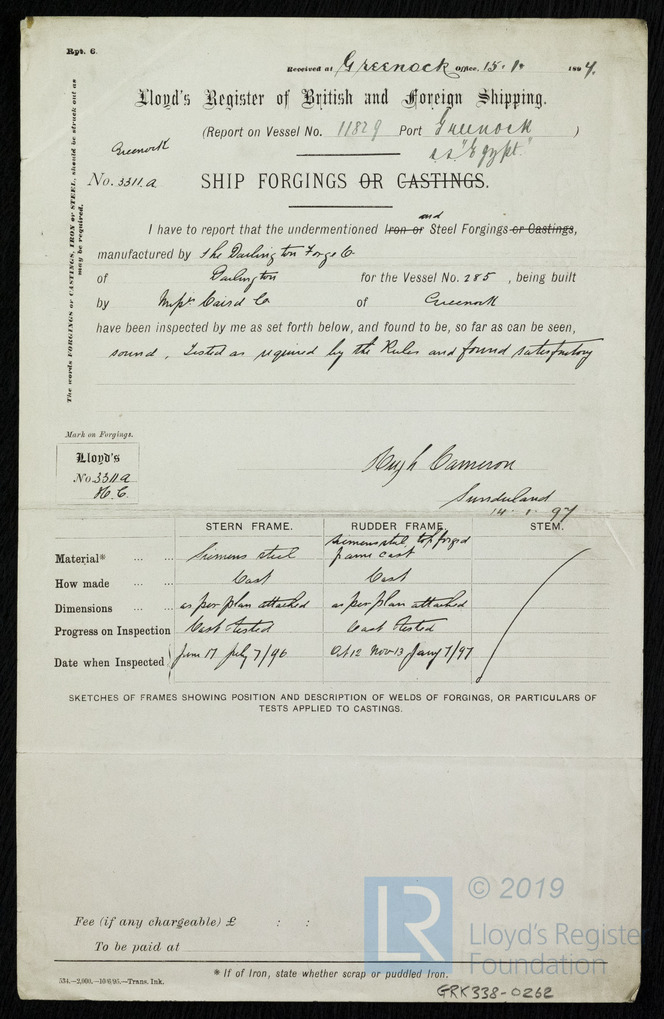 Rpt. 6.
Received at Greenock Office, 15. 1. 1897.
Lloyd's Register of British and Foreign Shipping.
(Report on Vessel No. 11829 Port Greenock )
s.s. "Egypt."
Greenock
No. 3311.a SHIP FORGINGS OR CASTINGS.
The words FORGINGS or CASTINGS, IRON or STEEL, should be struck out as
may be required.
and
I have to report that the undermentioned Iron or Steel Forgings or Castings,
manufactured by the Darlington Forge Co
of Darlington for the Vessel No. 285 , being built
by Messrs Caird Co of Greenock
have been inspected by me as set forth below, and found to be, so far as can be seen,
sound. Tested as required by the Rules and found satisfactory
Mark on Forgings.
Lloyd's
No 3311a
H. C.
Hugh Cameron
Sunderland
14. 1. 97
STERN FRAME. RUDDER FRAME. STEM.
Material* ... ... Siemens steel Siemens steel top forged
frame cast
How made ... ... Cast Cast
Dimensions ... ... as per plan attached as per plan attached
Progress on Inspection Cast tested Cast tested
Date when Inspected June 17 July 7/96 Oct 12 Nov 13 Jany 7/97
SKETCHES OF FRAMES SHOWING POSITION AND DESCRIPTION OF WELDS OF FORGINGS, OR PARTICULARS OF
TESTS APPLIED TO CASTINGS.
Fee (if any chargeable) £ : :
To be paid at
* If of Iron, state whether scrap or puddled Iron.
534.—2,000.—10/6/95.—Trans. Ink.
GRK338-0262
LR
© 2019
Lloyd's Register
Foundation